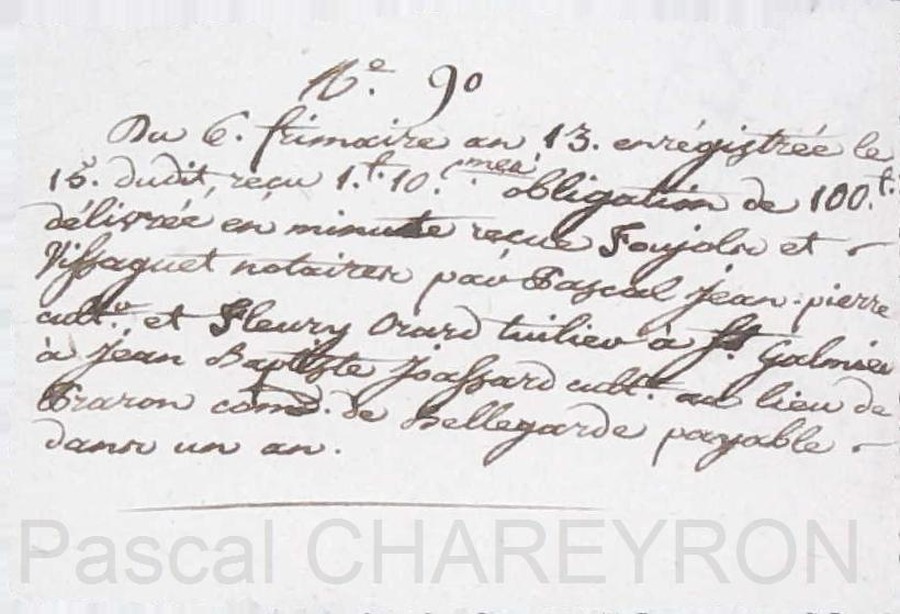 N.º 90
Du 6. frimaire an 13. enrégistrée le
15. dudit, reçu 1.# 10.mes obligation de 100.#
délivrée en minute reçue Foujols et
Vissaguet notaires par Pascal Jean-pierre
cult.r et Fleury Orard tuilier à St Galmier
à Jean Baptiste Joassard cult.r au lieu de
Praron com. de Bellegarde payable
dans un an.
Pascal CHAREYRON